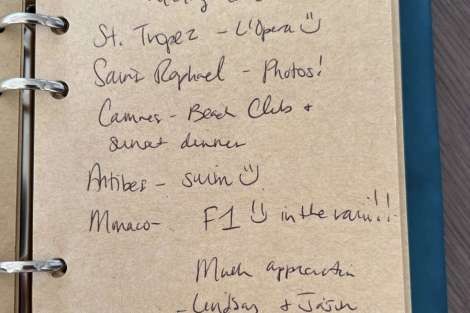 St. Tropez - L'Opera ☺
Saint Raphael - Photos!
Cannes - Beach Club &
sunset dinner
Antibes - swim ☺
Monaco - F1 ☺ in the rain!!
Much appreciation
- Lindsay & Jason